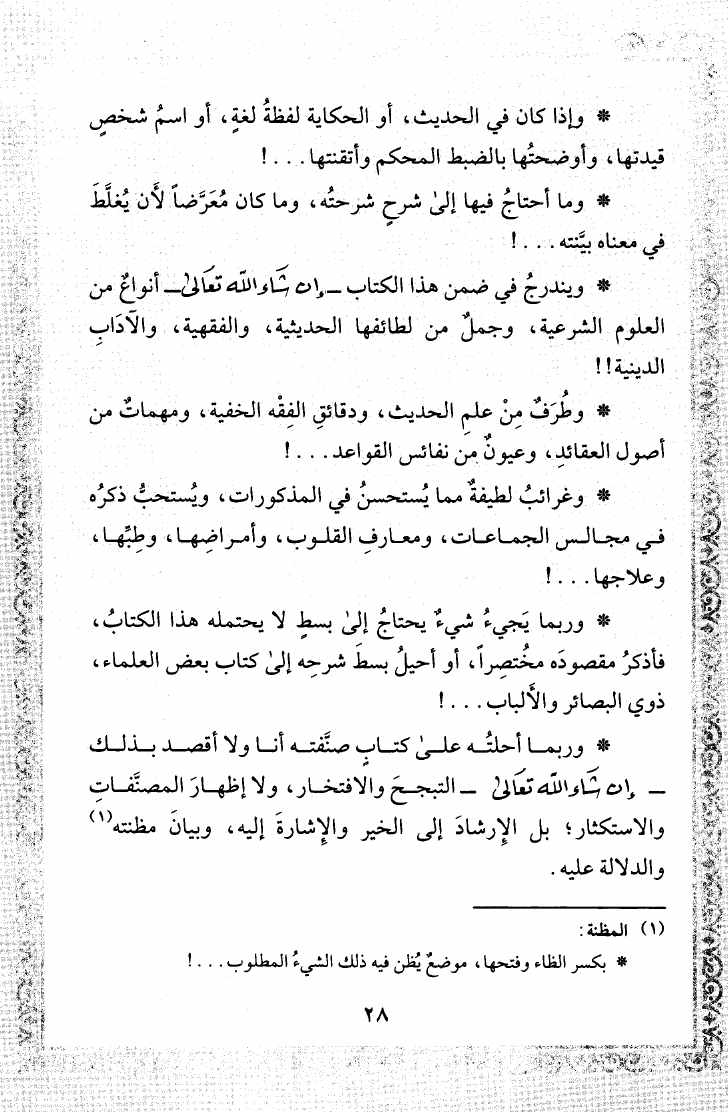 * وإذا كان في الحديث، أو الحكاية لفظةُ لغةٍ، أو اسمُ شخصٍ
قيدتها، وأوضحتُها بالضبط المحكم وأتقنتها...!
* وما أحتاجُ فيها إلىٰ شرحٍ شرحتُه، وما كان مُعَرَّضاً لأَن يُغلَّطَ
في معناه بيَّنته...!
* ويندرجُ في ضمن هذا الكتاب ـ إن شَاء الله تعَالىٰ ـ أنواعٌ من
العلوم الشرعية، وجملٌ من لطائفها الحديثية، والفقهية، والآدَابِ
الدينية!!
* وطُرَفٌ مِنْ علمِ الحديث، ودقائقِ الفِقْه الخفية، ومهماتٌ من
أصول العقائدِ، وعيونٌ من نفائس القواعد...!
* وغرائبُ لطيفةٌ مما يُستحسنُ في المذكورات، ويُستحبُّ ذكرُه
في مجالس الجماعات، ومعارفِ القلوب، وأمراضِها، وطِبِّها،
وعلاجها...!
* وربما يَجيءُ شيءٌ يحتاجُ إلىٰ بسطٍ لا يحتمله هذا الكتابُ،
فأذكرُ مقصودَه مختُصِراً، أو أحيلُ بسطَ شرحِه إلىٰ كتاب بعض العلماء،
ذوي البصائر والأَلباب...!
* وربما أحلتُه علىٰ كتابٍ صنَّفته أنا ولا أقصد بذلك
ـ إن شَاء الله تعَالىٰ ـ التبجحَ والافتخار، ولا إظهارَ المصنَّفاتِ
والاستكثار؛ بل الإِرشادَ إلى الخير والإِشارةَ إليه، وبيانَ مظنته(١)
والدلالة عليه.
(١) المظنة:
* بكسر الظاء وفتحها، موضعٌ يُظن فيه ذلك الشيءُ المطلوب...!
٢٨